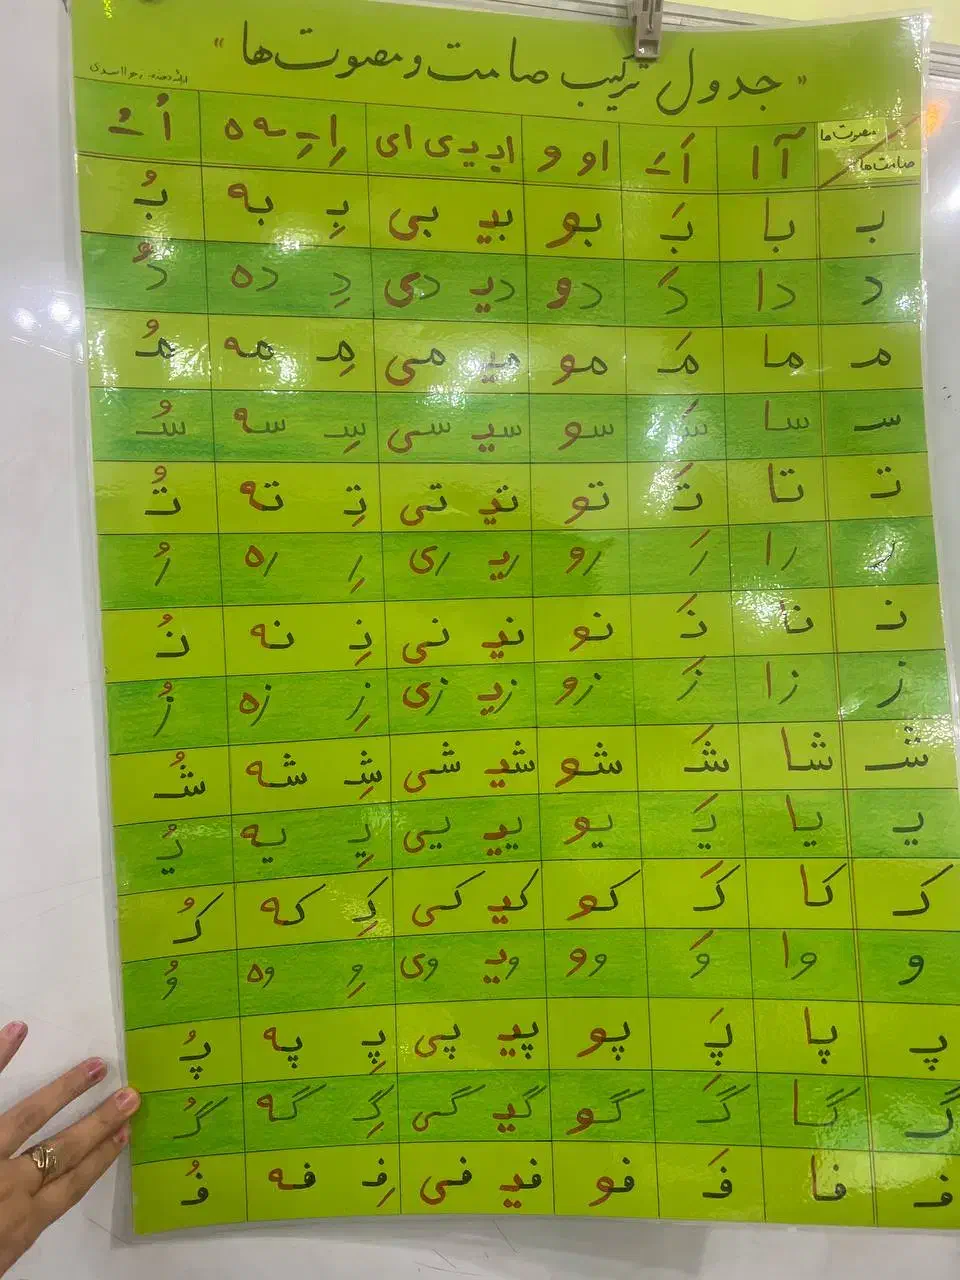 « جدول ترکیب صامت و مصوت ها »
مصوت ها
صامت ها
آ ا اَ ـَ او و ایـ یـ ی ای اِ ـِ ـه ه اُ ـُ
بـ با بَـ بو بیـ بی بِـ به بُـ
د دا دَ دو دیـ دی دِ ده دُ
مـ ما مَـ مو میـ می مِـ مه مُـ
سـ سا سَـ سو سیـ سی سِـ سه سُـ
تـ تا تَـ تو تیـ تی تِـ ته تُـ
ر را رَ رو ریـ ری رِ ره رُ
نـ نا نَـ نو نیـ نی نِـ نه نُـ
ز زا زَ زو زیـ زی زِ زه زُ
شـ شا شَـ شو شیـ شی شِـ شه شُـ
یـ یا یَـ یو ییـ یی یِـ یه یُـ
کـ کا کَـ کو کیـ کی کِـ که کُـ
و وا وَ وو ویـ وی وِ وه وُ
پـ پا پَـ پو پیـ پی پِـ په پُـ
گـ گا گَـ گو گیـ گی گِـ گه گُـ
فـ فا فَـ فو فیـ فی فِـ فه فُـ